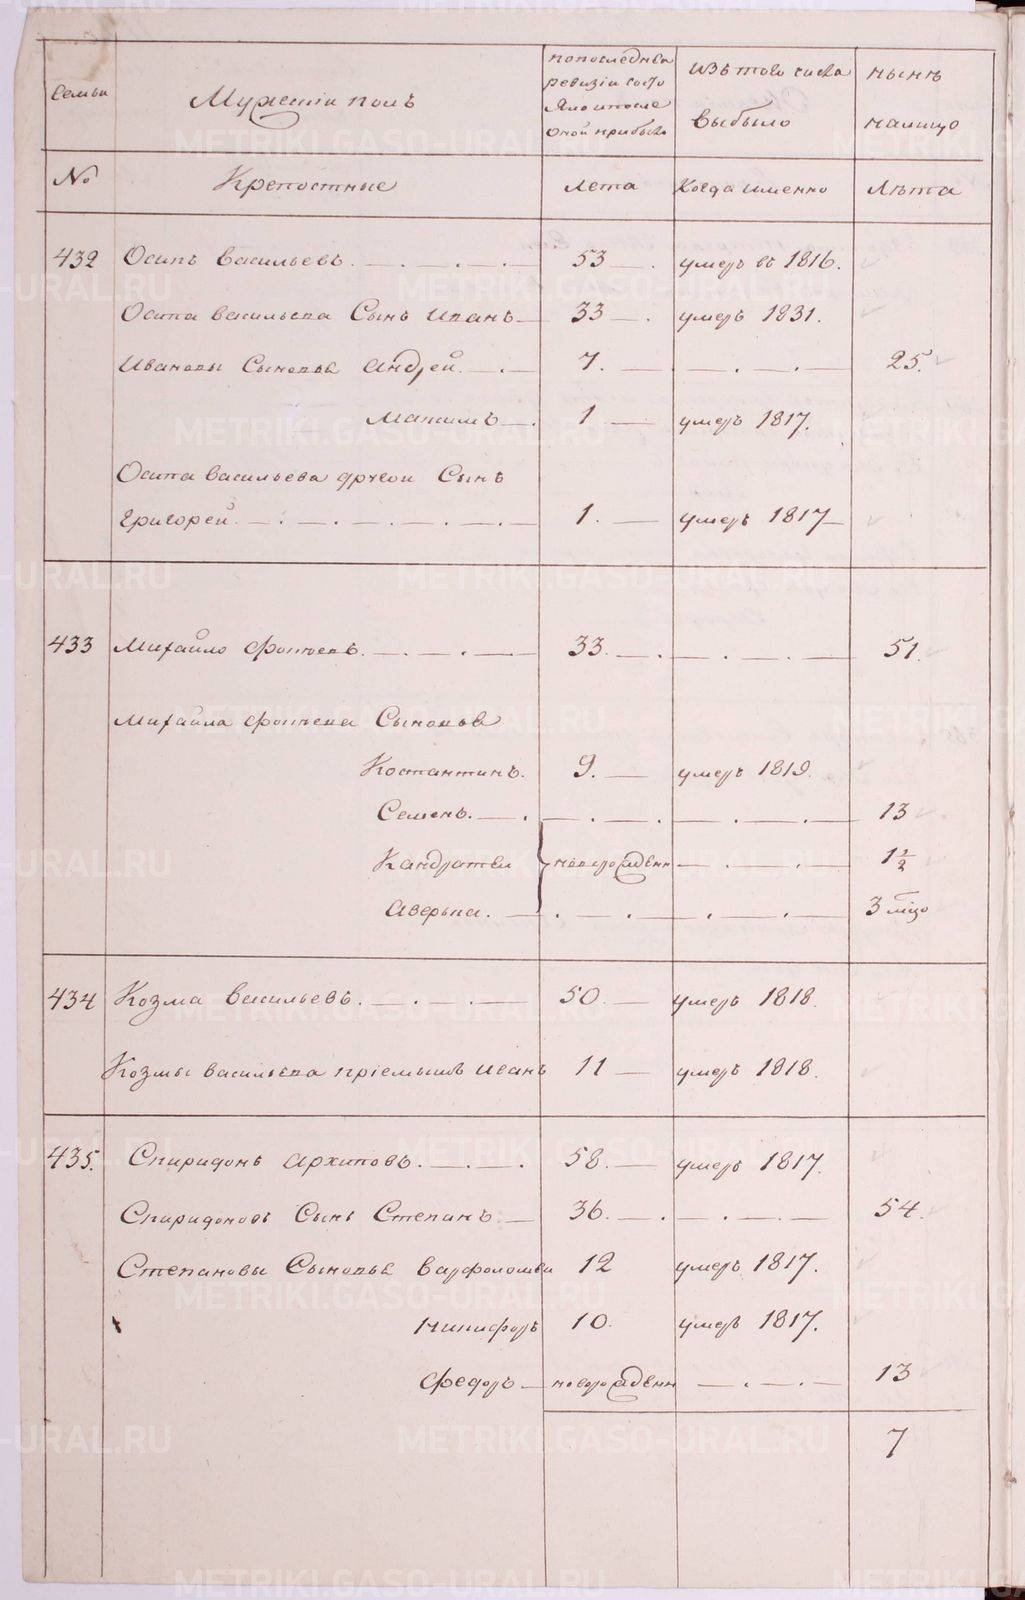 Семьи
Мужескiй полъ
попоследнѣй
ревизiи состо
яло ипосле
оной прибыло
Изъ того числа
выбыло
нынѣ
налицо
№
Крепостные
Лета
Когда именно
Лѣта
432 Осипъ Васильевъ. 53 умеръ въ 1816.
Осипа васильева Сынъ Иванъ 33 умеръ 1831.
Ивановы Сыновья Андрей 7. 25.
Мапимъ 1 умеръ 1817.
Осипа васильева другой Сынъ
Григорей 1. умеръ 1817
433 Михайло Фотѣевъ. 33. 51.
Михайла Фотѣева Сыновья
Костантинъ. 9. умеръ 1819.
Семенъ. 13
Кандратей новорожденн 1 1/2
Аверьпа. 3 мцо
434 Козма Васильевъ. 50. умеръ 1818.
Козмы васильева прiемышъ Иванъ 11 умеръ 1818.
435. Спиридонъ Архиповъ. 58. умеръ 1817.
Спиридоновъ Сынъ Степанъ. 36. 54.
Степановы Сыновья Варфоломей 12 умеръ 1817.
Никифоръ 10. умеръ 1817.
Федоръ новорожденн 13
7
METRIKI.GASO-URAL.RU